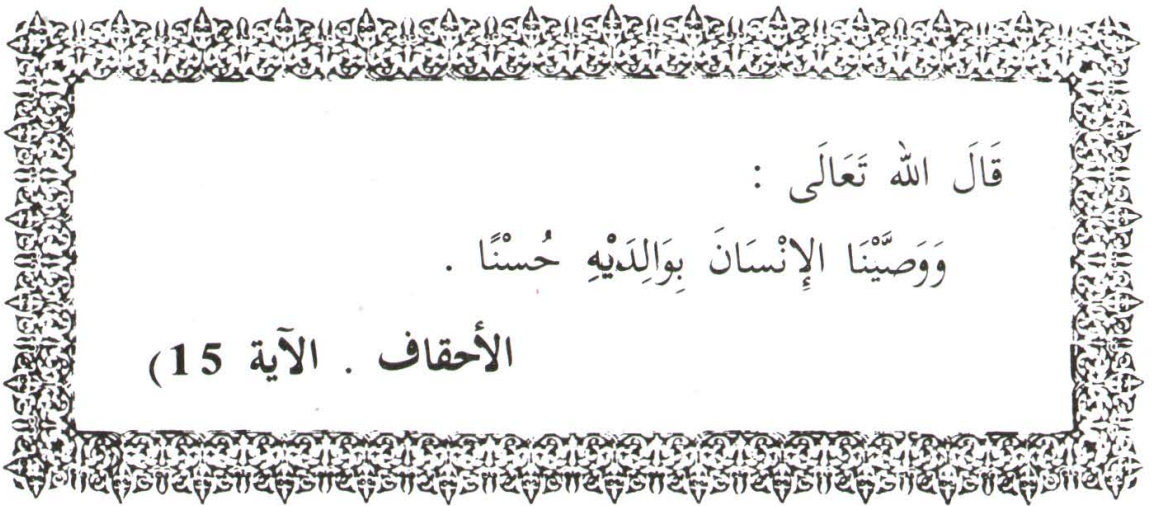 قَالَ الله تَعَالَى :
وَوَصَّيْنَا الإِنْسَانَ بِوَالِدَيْهِ حُسْنًا .
الأحقاف . الآية 15)